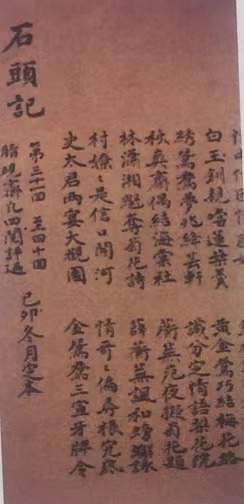 白玉釧親嚐蓮葉羹 黃金鶯巧結梅花絡
綉鴛鴦夢兆絳芸軒 識分定情語梨花院
秋爽齋偶結海棠社 蘅蕪苑夜擬菊花題
林瀟湘魁奪菊花詩 薛蘅蕪諷和螃蟹詠
村嫽〻是信口開河 情哥〻偏尋根究底
史太君兩宴大觀園 金鴛鴦三宣牙牌令
石頭記
第三十一回 至四十回
脂硯齋凡四閱評過 己卯冬月定本